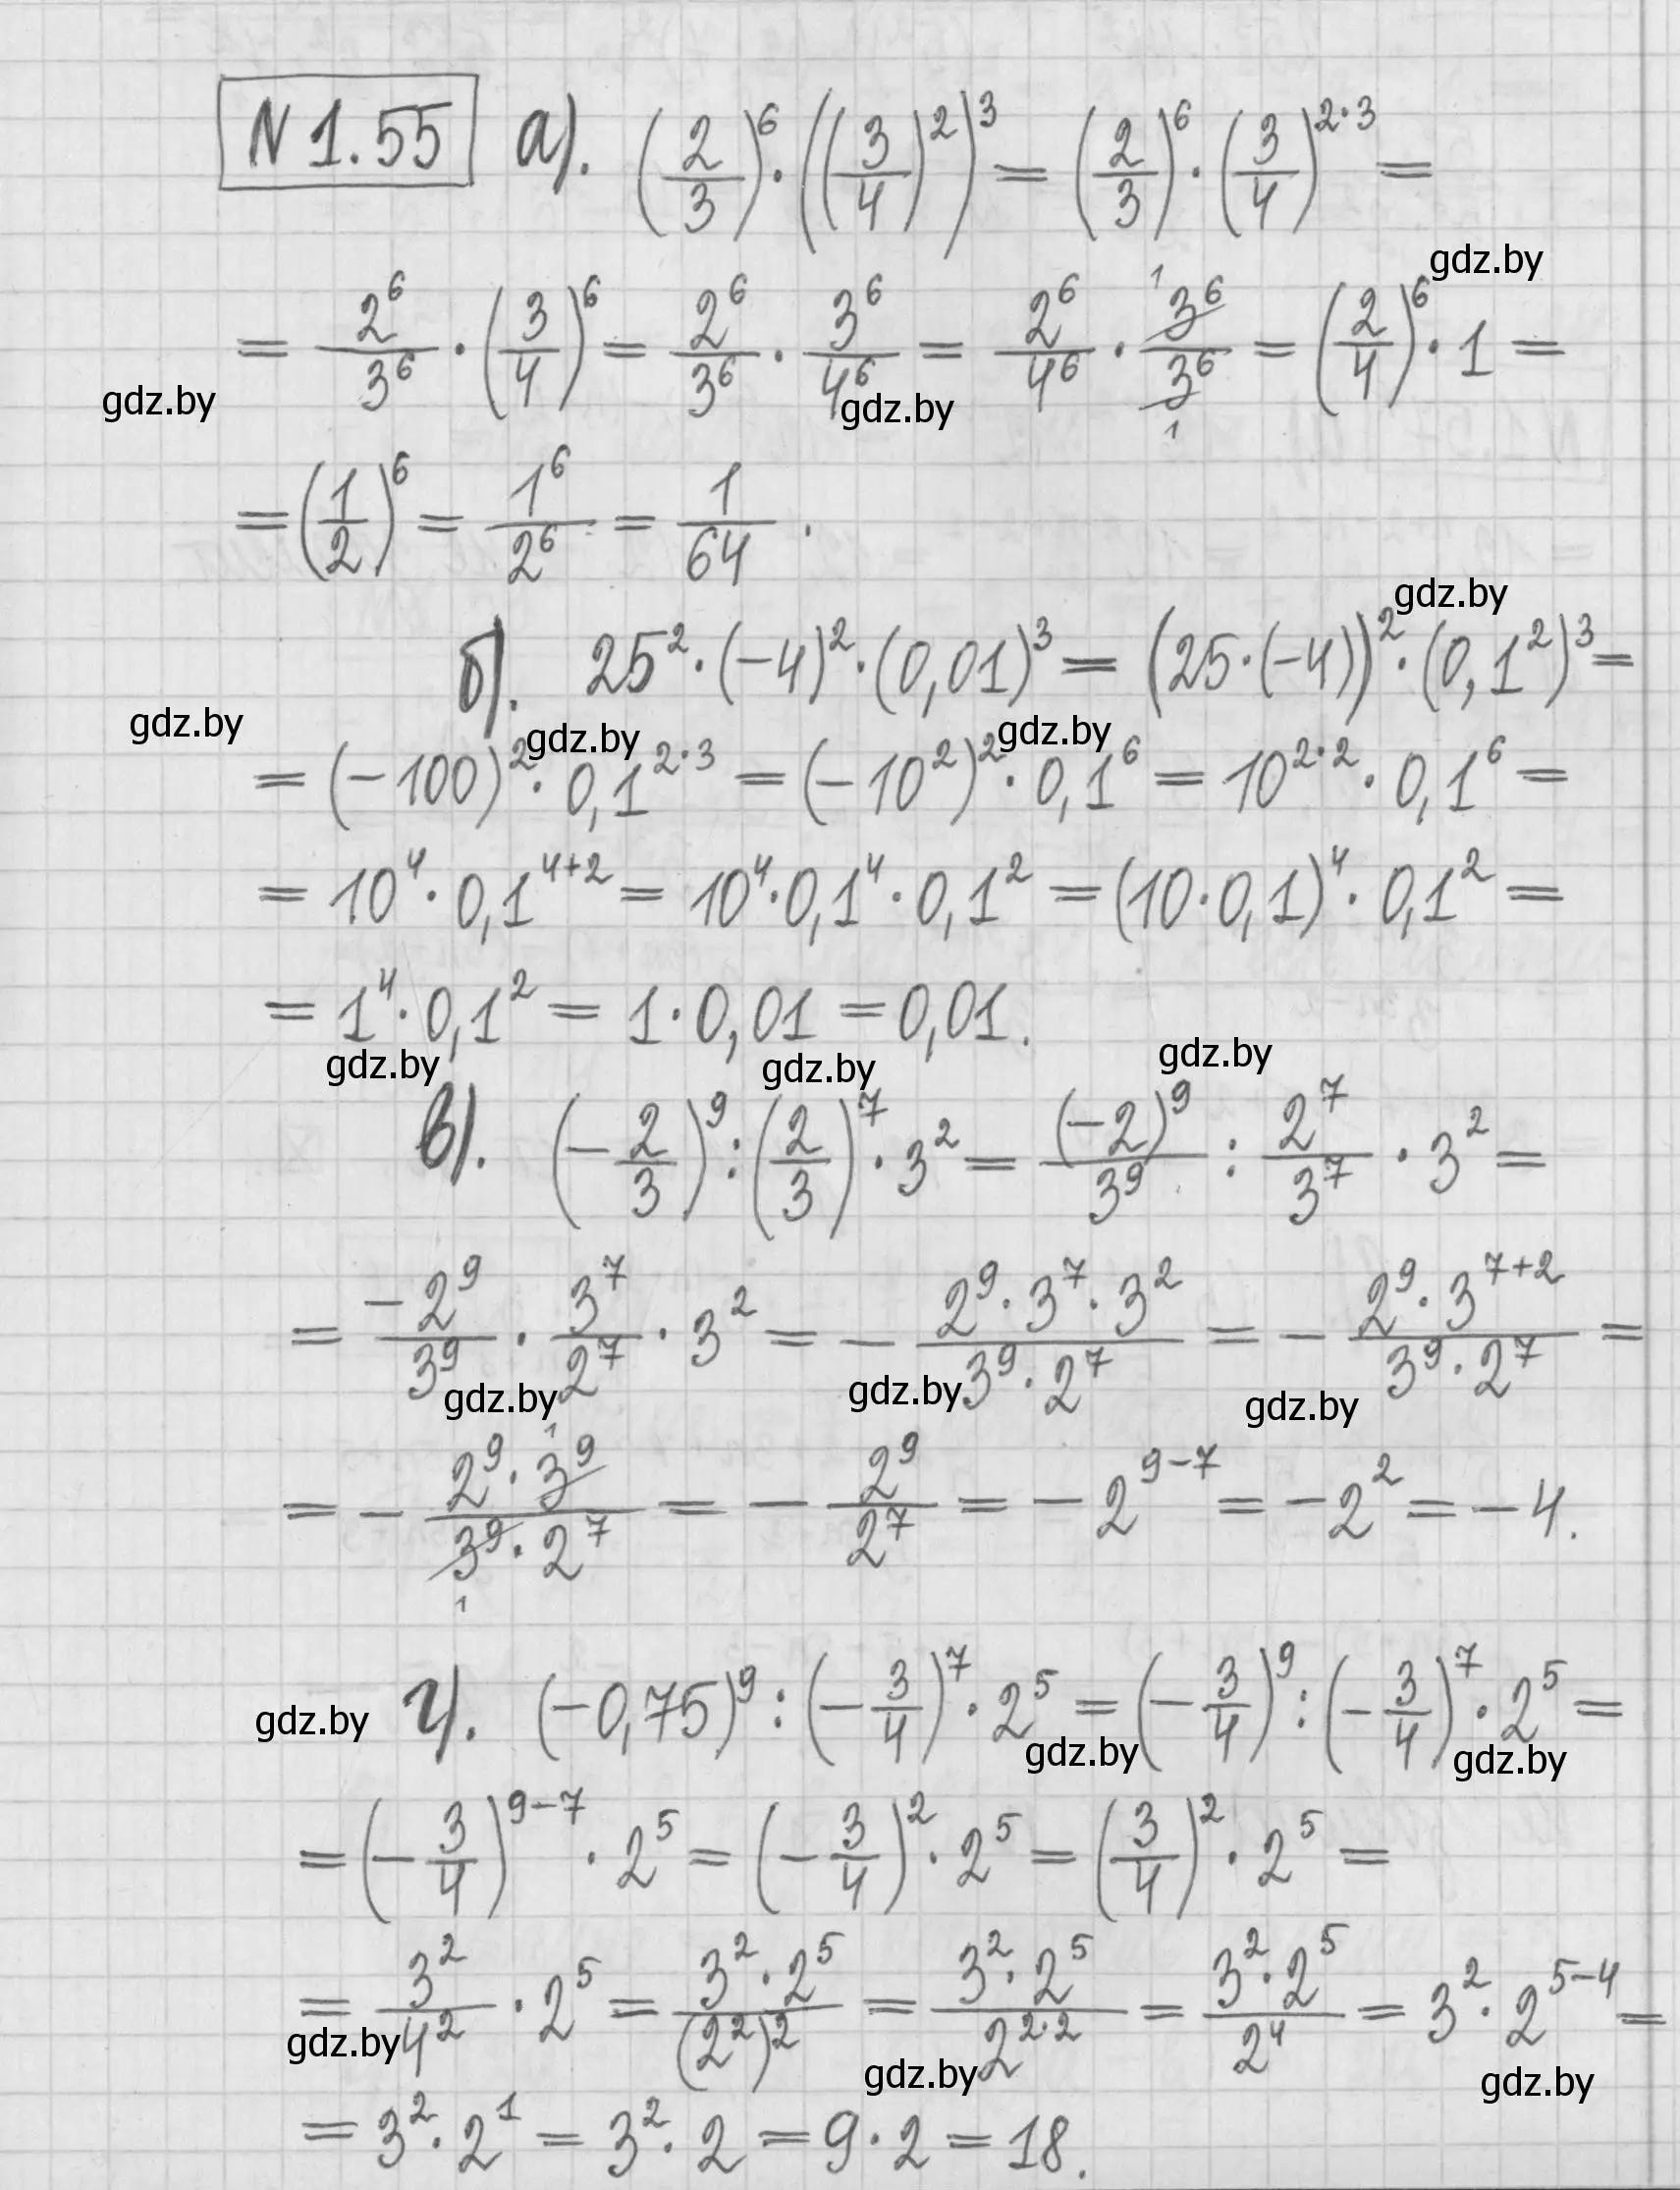 N 1.55 а). (2/3)^6 · ((3/4)^2)^3 = (2/3)^6 · (3/4)^{2·3} =
gdz.by
= 2^6/3^6 · (3/4)^6 = 2^6/3^6 · 3^6/4^6 = 2^6/4^6 · 3^6/3^6 = (2/4)^6 · 1 =
1
1
gdz.by gdz.by
= (1/2)^6 = 1^6/2^6 = 1/64 .
gdz.by
б). 25^2 · (-4)^2 · (0,01)^3 = (25 · (-4))^2 · (0,1^2)^3 =
gdz.by gdz.by gdz.by
= (-100)^2 · 0,1^{2·3} = (-10^2)^2 · 0,1^6 = 10^{2·2} · 0,1^6 =
= 10^4 · 0,1^{4+2} = 10^4 · 0,1^4 · 0,1^2 = (10 · 0,1)^4 · 0,1^2 =
= 1^4 · 0,1^2 = 1 · 0,01 = 0,01.
gdz.by gdz.by gdz.by
в). (-2/3)^9 : (2/3)^7 · 3^2 = (-2)^9/3^9 : 2^7/3^7 · 3^2 =
= -2^9/3^9 · 3^7/2^7 · 3^2 = - (2^9 · 3^7 · 3^2)/(3^9 · 2^7) = - (2^9 · 3^{7+2})/(3^9 · 2^7) =
gdz.by gdz.by gdz.by
= - (2^9 · 3^9)/(3^9 · 2^7) = - 2^9/2^7 = - 2^{9-7} = - 2^2 = - 4.
1
1
г). (-0,75)^9 : (-3/4)^7 · 2^5 = (-3/4)^9 : (-3/4)^7 · 2^5 =
gdz.by gdz.by gdz.by
= (-3/4)^{9-7} · 2^5 = (-3/4)^2 · 2^5 = (3/4)^2 · 2^5 =
= 3^2/4^2 · 2^5 = (3^2 · 2^5)/(2^2)^2 = (3^2 · 2^5)/2^{2·2} = (3^2 · 2^5)/2^4 = 3^2 · 2^{5-4} =
gdz.by gdz.by gdz.by
= 3^2 · 2^1 = 3^2 · 2 = 9 · 2 = 18.